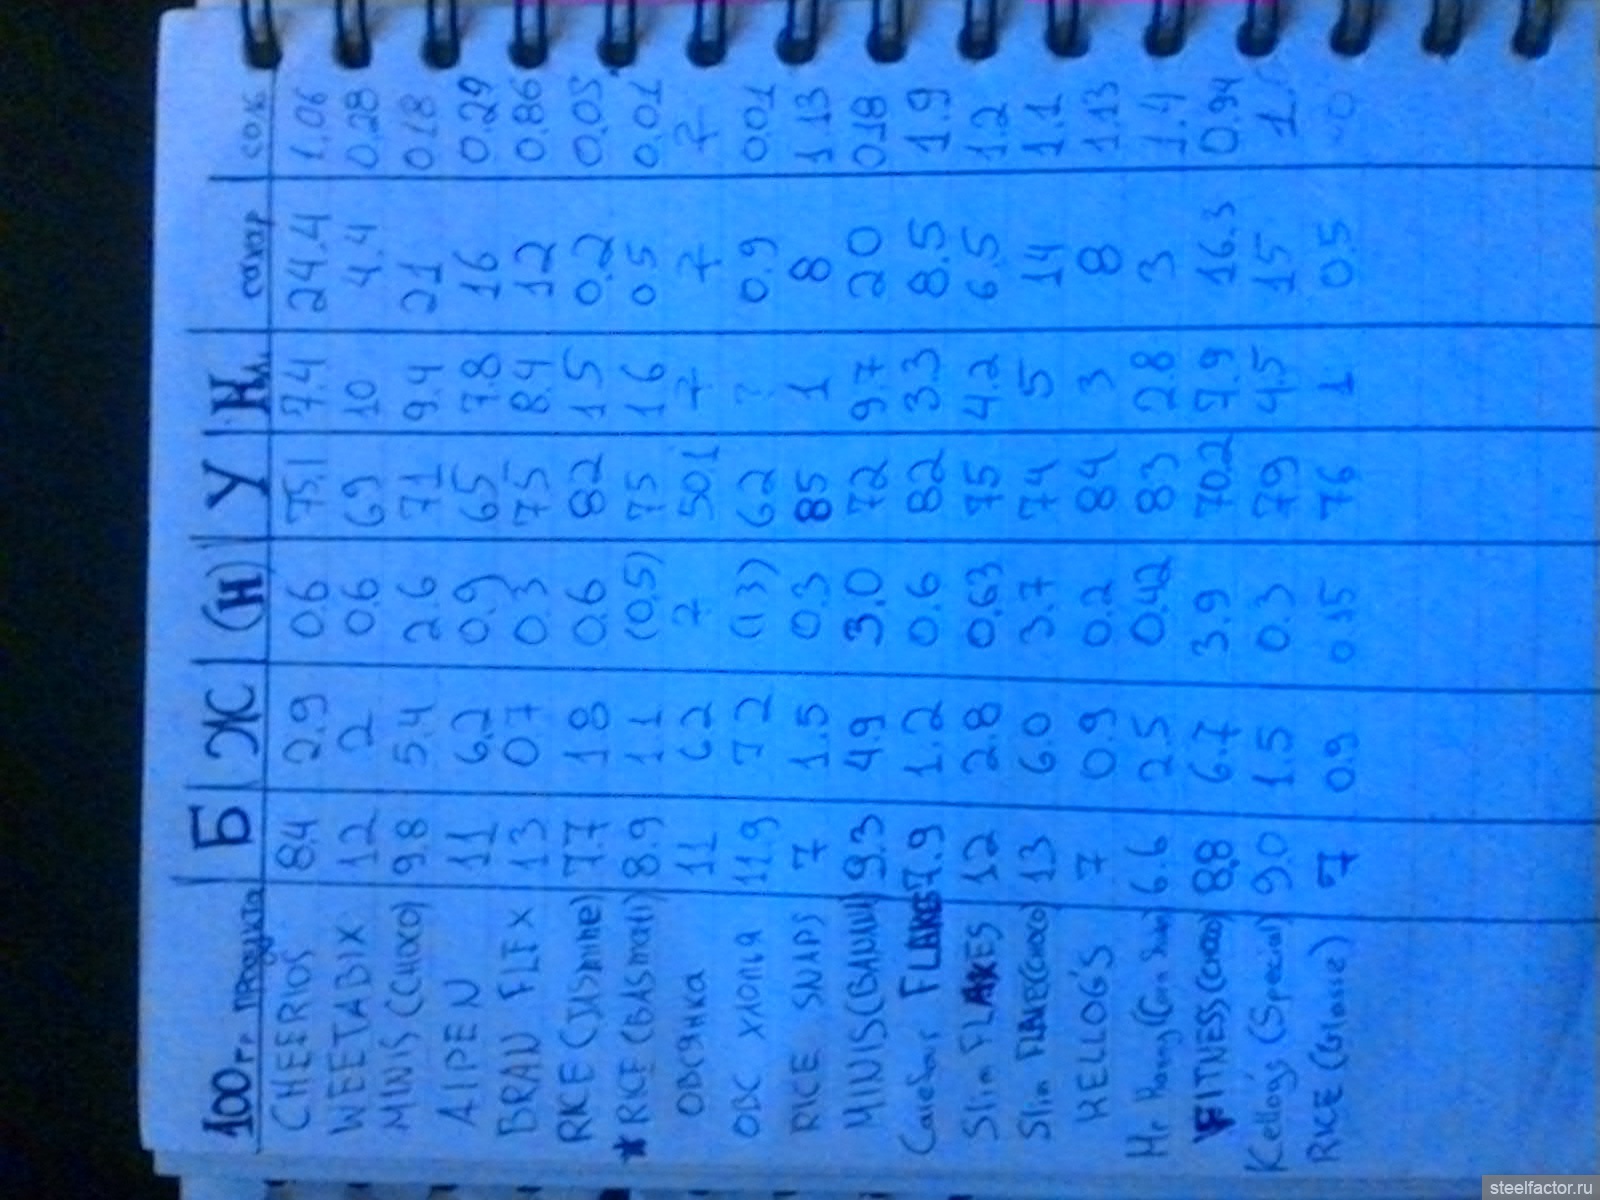 100гр продукта Б Ж (Н) У Н сахар соль
CHEERIOS 8.4 2.9 0.6 75.1 7.4 24.4 1.06
WEETABIX 12 2 0.6 69 10 4.4 0.28
MINIS (CHOCO) 9.8 5.4 2.6 71 9.4 21 0.18
ALPEN 11 6.2 0.9 65 7.8 16 0.29
BRAN FLEX 13 0.7 0.3 75 8.4 12 0.86
RICE (JASMINE) 7.7 1.8 0.6 82 1.5 0.2 0.05
* RICE (BASMATI) 8.9 1.1 (0.5) 75 1.6 0.5 0.01
ОВСЯНКА 11 6.2 ? 50.1 ? ? ?
ОВС ХЛОПЬЯ 11.9 7.2 (1.3) 62 ? 0.9 0.01
RICE SNAPS 7 1.5 0.3 85 1 8 1.13
MINIS (BANAN) 9.3 4.9 3.0 72 9.7 20 0.18
FLAKES 7.9 1.2 0.6 82 3.3 8.5 1.9
Slim FLAKES 12 2.8 0.63 75 4.2 6.5 1.2
Slim FLAKE (CHOCO) 13 6.0 3.7 74 5 14 1.1
KELLOG'S 7 0.9 0.2 84 3 8 1.13
Mr 6.6 2.5 0.42 83 2.8 3 1.4
FITNESS (CHOCO) 8.8 6.7 3.9 70.2 7.9 16.3 0.94
Kellog's (Special) 9.0 1.5 0.3 79 4.5 15
RICE (Glasse) 7 0.9 0.35 76 1 0.5
steelfactor.ru